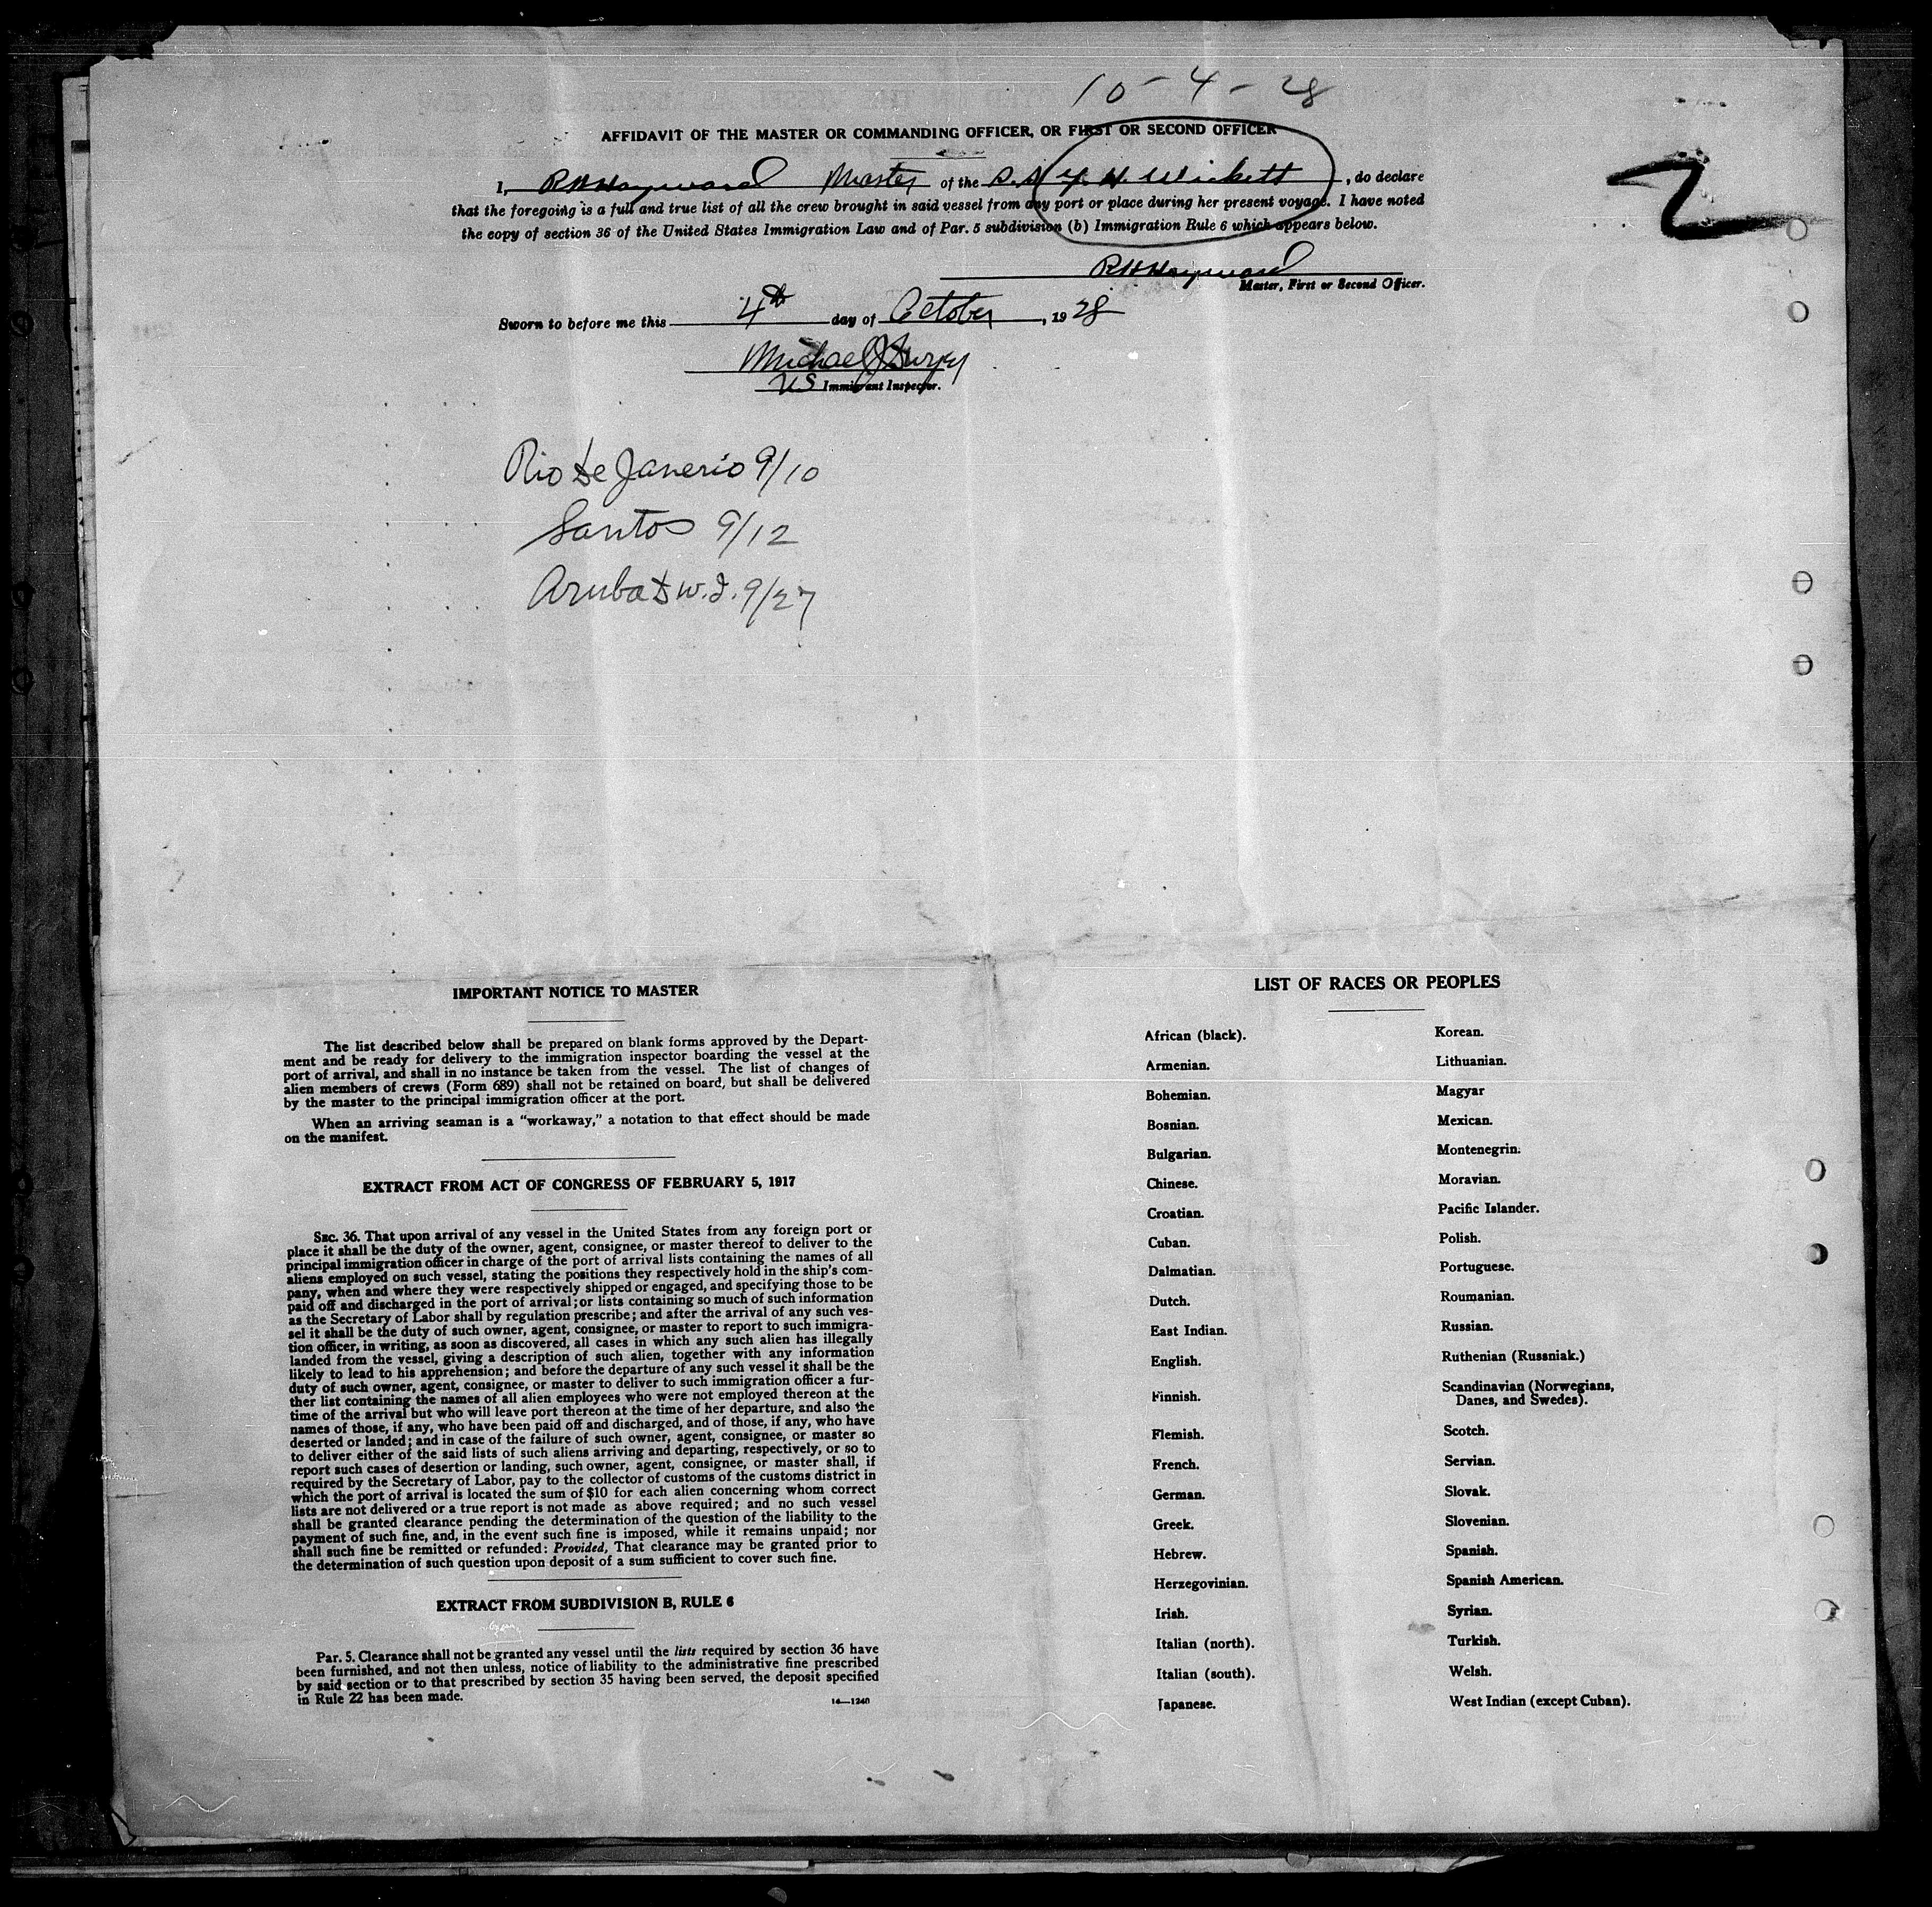 10-4-28
AFFIDAVIT OF THE MASTER OR COMMANDING OFFICER, OR FIRST OR SECOND OFFICER
I, R H Hayward Master of the S.S. H. Wickett, do declare
that the foregoing is a full and true list of all the crew brought in said vessel from any port or place during her present voyage. I have noted
the copy of section 36 of the United States Immigration Law and of Par. 5 subdivision (b) Immigration Rule 6 which appears below.
2
R H Hayward
Master, First or Second Officer.
Sworn to before me this 4th day of October, 1928
Michael J
US Immigrant Inspector.
Rio De Janerio 9/10
Santos 9/12
Aruba D W.I. 9/27
IMPORTANT NOTICE TO MASTER
The list described below shall be prepared on blank forms approved by the Depart-
ment and be ready for delivery to the immigration inspector boarding the vessel at the
port of arrival, and shall in no instance be taken from the vessel. The list of changes of
alien members of crews (Form 689) shall not be retained on board, but shall be delivered
by the master to the principal immigration officer at the port.
When an arriving seaman is a "workaway," a notation to that effect should be made
on the manifest.
EXTRACT FROM ACT OF CONGRESS OF FEBRUARY 5, 1917
SEC. 36. That upon arrival of any vessel in the United States from any foreign port or
place it shall be the duty of the owner, agent, consignee, or master thereof to deliver to the
principal immigration officer in charge of the port of arrival lists containing the names of all
aliens employed on such vessel, stating the positions they respectively hold in the ship's com-
pany, when and where they were respectively shipped or engaged, and specifying those to be
paid off and discharged in the port of arrival; or lists containing so much of such information
as the Secretary of Labor shall by regulation prescribe; and after the arrival of any such ves-
sel it shall be the duty of such owner, agent, consignee, or master to report to such immigra-
tion officer, in writing, as soon as discovered, all cases in which any such alien has illegally
landed from the vessel, giving a description of such alien, together with any information
likely to lead to his apprehension; and before the departure of any such vessel it shall be the
duty of such owner, agent, consignee, or master to deliver to such immigration officer a fur-
ther list containing the names of all alien employees who were not employed thereon at the
time of the arrival but who will leave port thereon at the time of her departure, and also the
names of those, if any, who have been paid off and discharged, and of those, if any, who have
deserted or landed; and in case of the failure of such owner, agent, consignee, or master so
to deliver either of the said lists of such aliens arriving and departing, respectively, or so to
report such cases of desertion or landing, such owner, agent, consignee, or master shall, if
required by the Secretary of Labor, pay to the collector of customs of the customs district in
which the port of arrival is located the sum of $10 for each alien concerning whom correct
lists are not delivered or a true report is not made as above required; and no such vessel
shall be granted clearance pending the determination of the question of the liability to the
payment of such fine, and, in the event such fine is imposed, while it remains unpaid; nor
shall such fine be remitted or refunded: Provided, That clearance may be granted prior to
the determination of such question upon deposit of a sum sufficient to cover such fine.
EXTRACT FROM SUBDIVISION B, RULE 6
Par. 5. Clearance shall not be granted any vessel until the lists required by section 36 have
been furnished, and not then unless, notice of liability to the administrative fine prescribed
by said section or to that prescribed by section 35 having been served, the deposit specified
in Rule 22 has been made.
14—1240
LIST OF RACES OR PEOPLES
African (black).
Armenian.
Bohemian.
Bosnian.
Bulgarian.
Chinese.
Croatian.
Cuban.
Dalmatian.
Dutch.
East Indian.
English.
Finnish.
Flemish.
French.
German.
Greek.
Hebrew.
Herzegovinian.
Irish.
Italian (north).
Italian (south).
Japanese.
Korean.
Lithuanian.
Magyar
Mexican.
Montenegrin.
Moravian.
Pacific Islander.
Polish.
Portuguese.
Roumanian.
Russian.
Ruthenian (Russniak.)
Scandinavian (Norwegians,
Danes, and Swedes).
Scotch.
Servian.
Slovak.
Slovenian.
Spanish.
Spanish American.
Syrian.
Turkish.
Welsh.
West Indian (except Cuban).